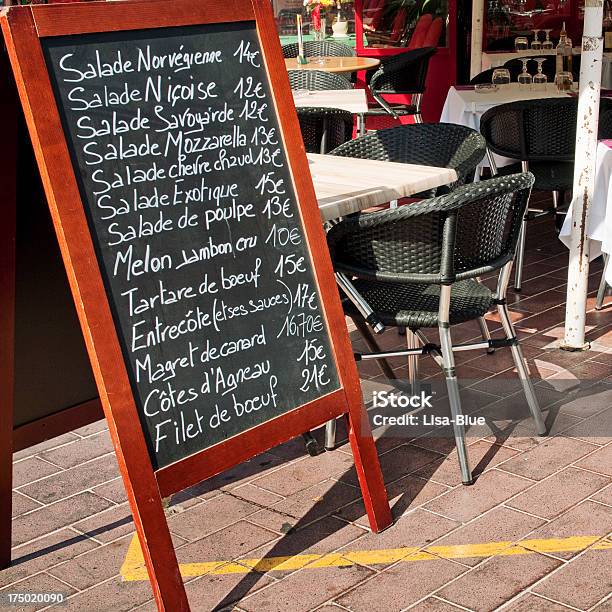 Salade Norvégienne 14€
Salade Niçoise 12€
Salade Savoyarde 12€
Salade Mozzarella 13€
Salade chevre chaud 13€
Salade Exotique 15€
Salade de poulpe 13€
Melon Jambon cru 10€
Tartare de boeuf 15€
Entrecôte (et ses sauces) 17€
Magret de canard 16,70€
Côtes d'Agneau 15€
Filet de boeuf 21€
iStock
Credit: Lisa-Blue
175020090